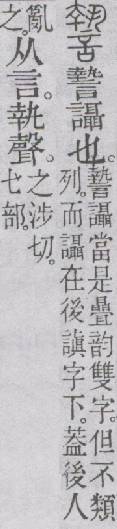 謺謺讘也。謺讘當是疊韵雙字。但不類
列。而讘在後謓字下。葢後人
亂之。从言。執聲。之涉切。
七部。